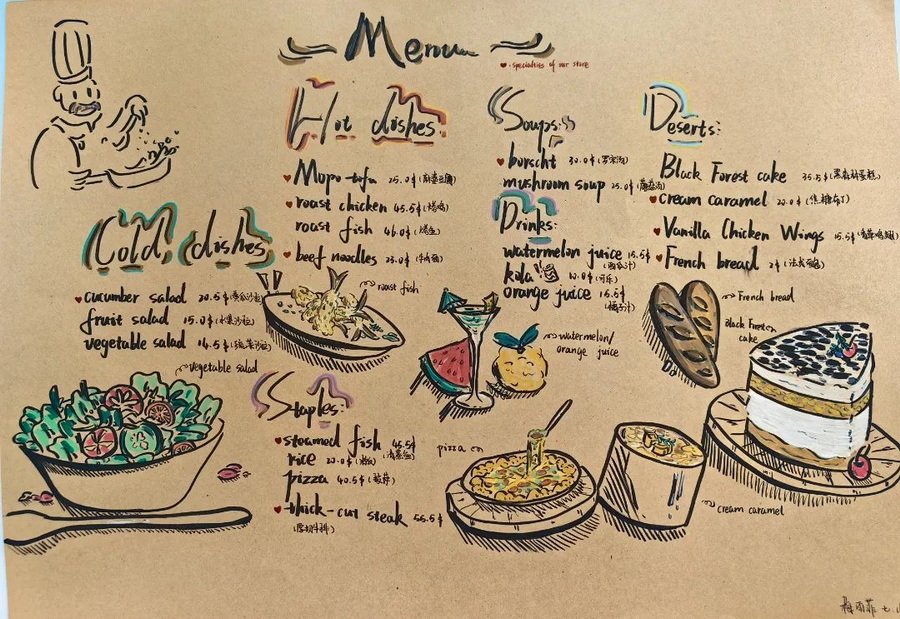 Menu
• specialties of our store
Hot dishes:
Mopo tofu 25.0$ (麻婆豆腐)
roast chicken 45.5$ (烤鸡)
roast fish 46.0$ (烤鱼)
beef noodles 23.0$ (牛肉面)
Cold dishes
cucumber salad 20.5$ (黄瓜沙拉)
fruit salad 15.0$ (水果沙拉)
vegetable salad 14.5$ (蔬菜沙拉)
vegetable salad
roast fish
Staples:
steamed fish 45.5$
(清蒸鱼)
rice 20.0$ (米饭)
pizza 40.5$ (披萨)
thick-cut steak 55.5$
(厚切牛排)
Soups:
borscht 30.0$ (罗宋汤)
mushroom soup 25.0$ (蘑菇汤)
Drinks:
watermelon juice 15.5$
(西瓜汁)
kola 10.0$ (可乐)
orange juice 15.5$
(橘子汁)
watermelon/
orange juice
pizza
Deserts:
Black Forest cake 35.5$ (黑森林蛋糕)
cream caramel 20.0$ (焦糖布丁)
Vanilla Chicken Wings 15.5$
French bread 2$ (法式面包)
French bread
Black Forest
cake
cream caramel